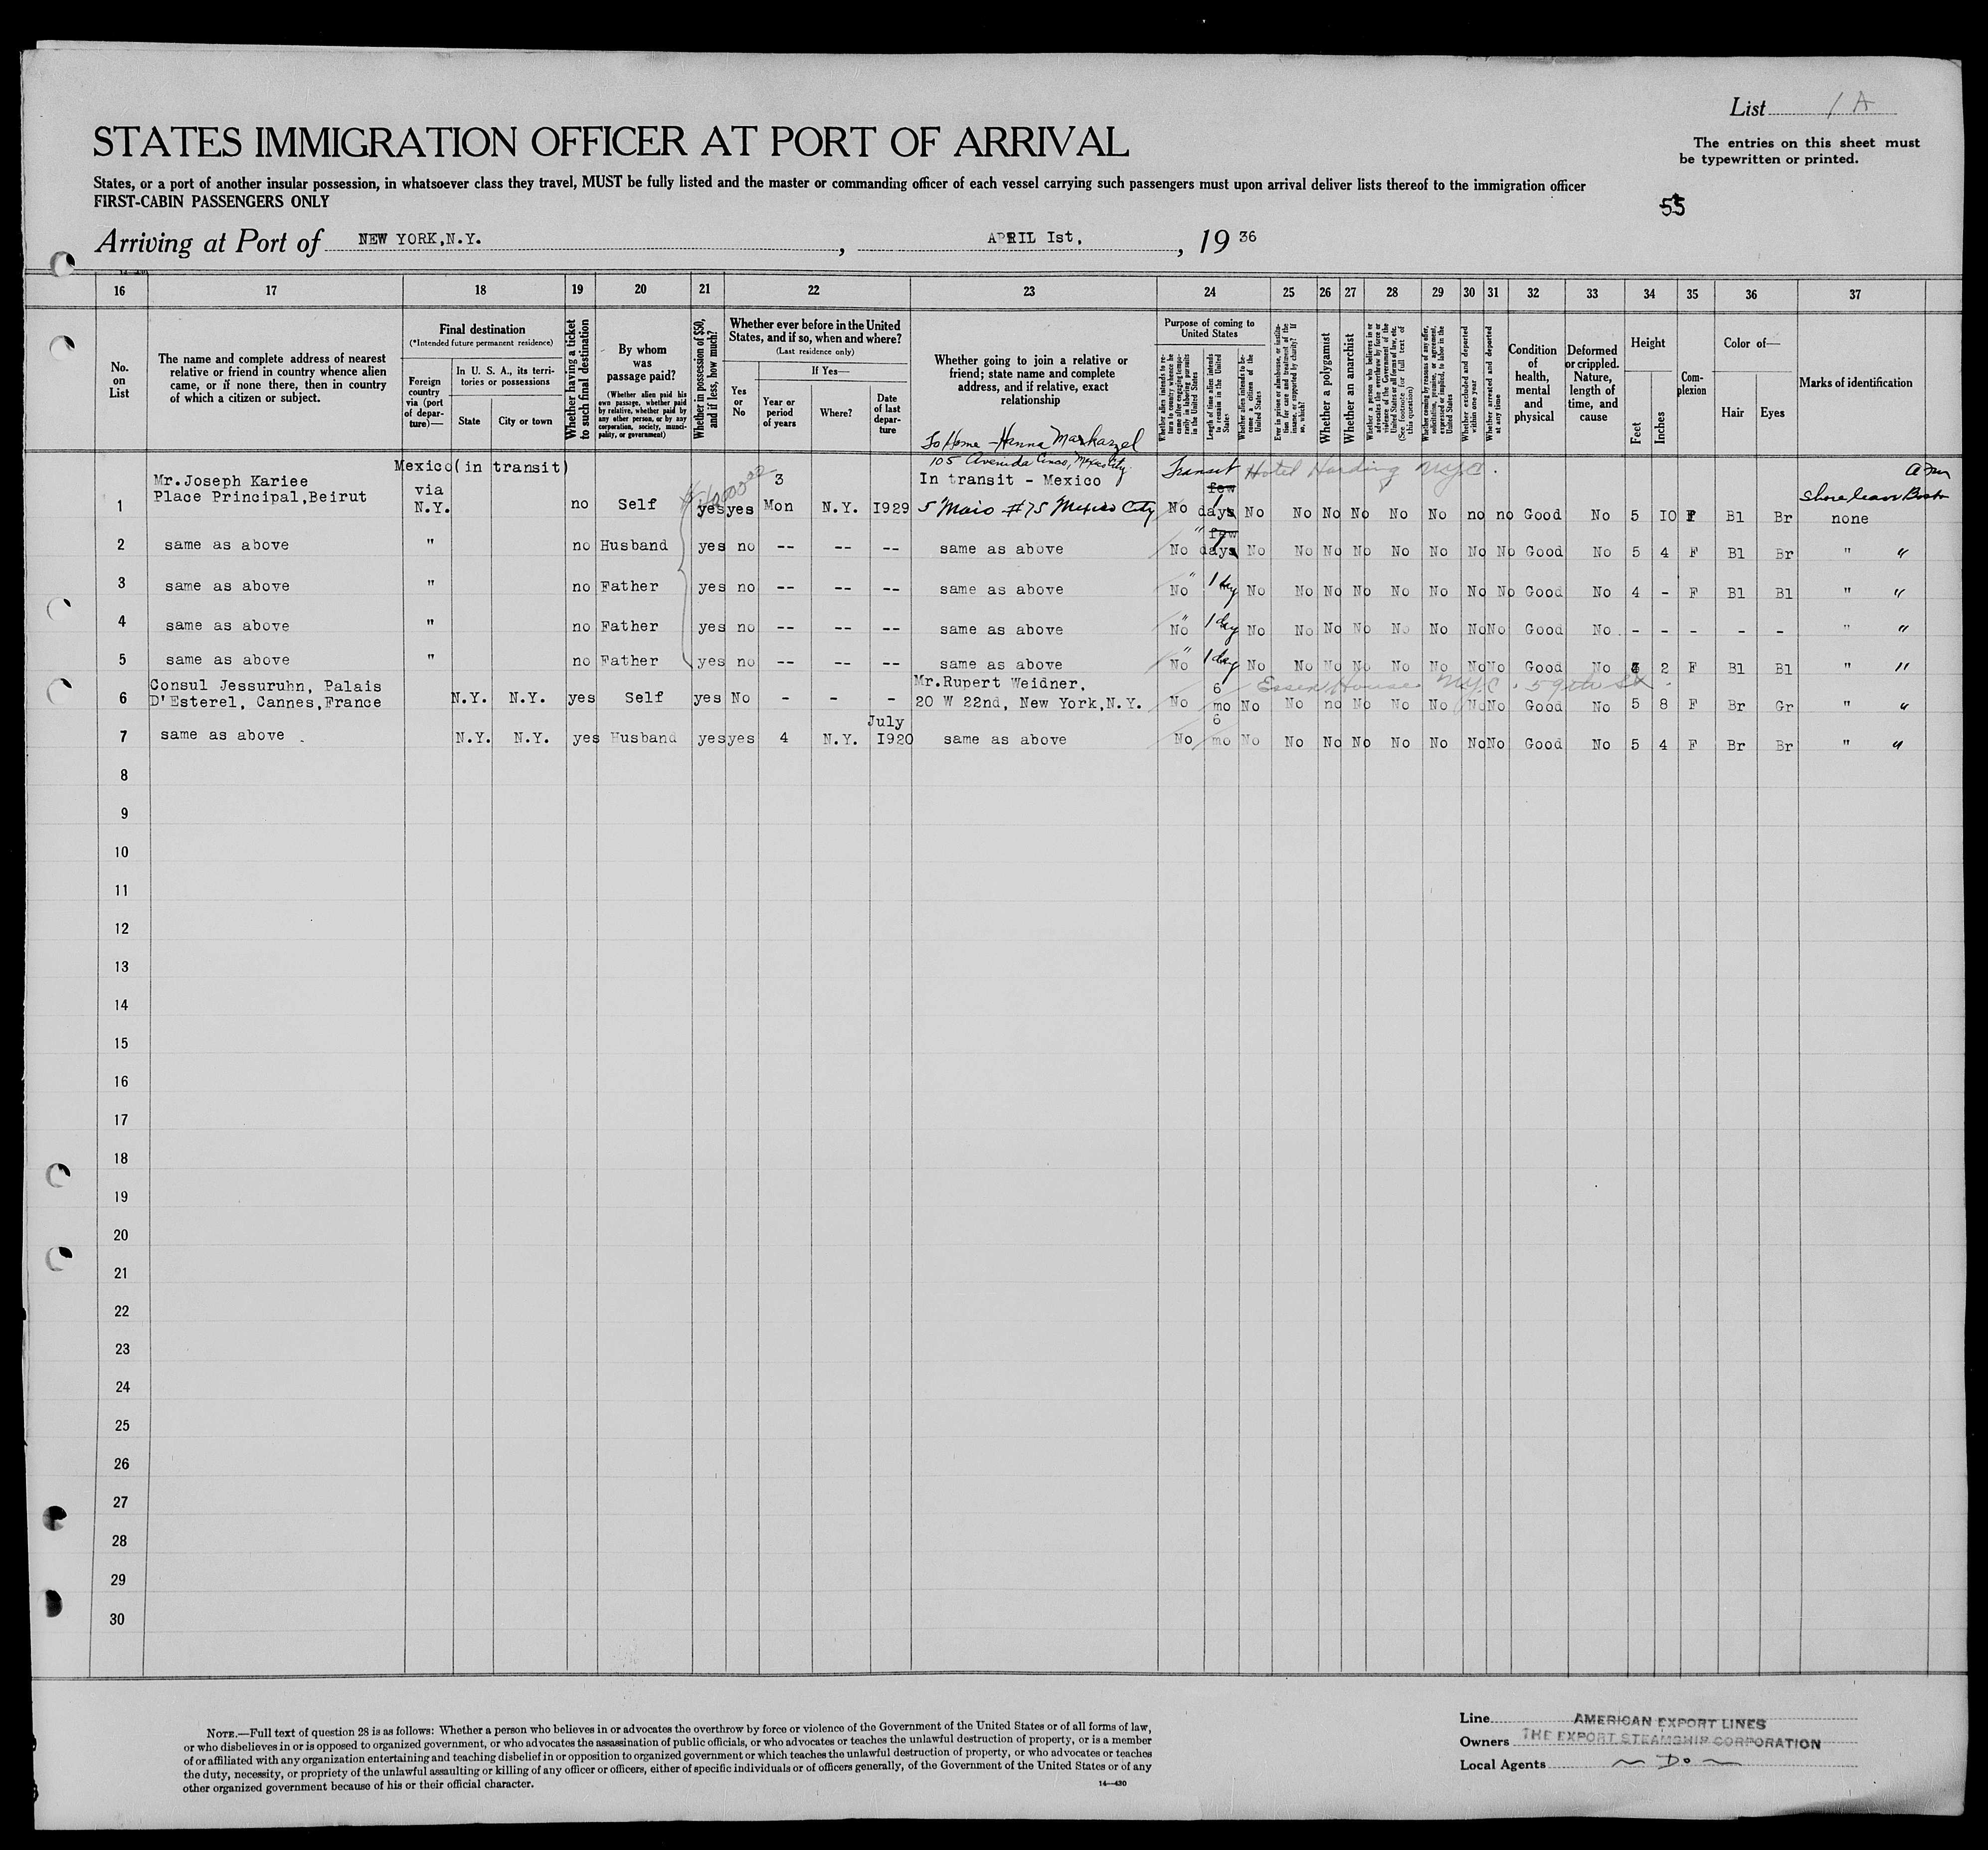 List 1 A
STATES IMMIGRATION OFFICER AT PORT OF ARRIVAL
The entries on this sheet must
be typewritten or printed.
States, or a port of another insular possession, in whatsoever class they travel, MUST be fully listed and the master or commanding officer of each vessel carrying such passengers must upon arrival deliver lists thereof to the immigration officer
FIRST-CABIN PASSENGERS ONLY
55
Arriving at Port of NEW YORK,N.Y. , APRIL Ist, , 19 36
16 17 18 19 20 21 22 23 24 25 26 27 28 29 30 31 32 33 34 35 36 37
No. on List
The name and complete address of nearest relative or friend in country whence alien came, or if none there, then in country of which a citizen or subject.
Final destination
(*Intended future permanent residence)
Foreign country via (port of departure)—
In U. S. A., its territories or possessions
State
City or town
Whether having a ticket to such final destination
By whom was passage paid?
(Whether alien paid his own passage, whether paid by relative, whether paid by any other person, or by any corporation, society, municipality, or government)
Whether in possession of $50, and if less, how much?
Whether ever before in the United States, and if so, when and where?
(Last residence only)
Yes or No
If Yes—
Year or period of years
Where?
Date of last departure
Whether going to join a relative or friend; state name and complete address, and if relative, exact relationship
Purpose of coming to United States
Whether alien intends to return to country whence he came after engaging temporarily in laboring pursuits in the United States
Length of time alien intends to remain in the United States
Whether alien intends to become a citizen of the United States
Ever in prison or almshouse, or institution for care and treatment of the insane, or supported by charity? If so, which?
Whether a polygamist
Whether an anarchist
Whether a person who believes in or advocates the overthrow by force or violence of the Government of the United States or all forms of law, etc. (See footnote for full text of this question)
Whether coming by reason of any offer, solicitation, promise, or agreement, expressed or implied, to labor in the United States
Whether excluded and deported within one year
Whether arrested and deported at any time
Condition of health, mental and physical
Deformed or crippled. Nature, length of time, and cause
Height
Feet
Inches
Complexion
Color of—
Hair
Eyes
Marks of identification
To Home - Hanna Markazel
105 Avenida Cinco, Mexico City
Mexico(in transit)
In transit - Mexico
Transit Hotel Harding NYC.
Mr.Joseph Kariee
Place Principal,Beirut
via
N.Y.
$10,000.00
3
few
Shore leave Boston
1 no Self yes yes Mon N.Y. I929 5 Maio #75 Mexico City No 1 days No No No No No No no no Good No 5 IO F Bl Br none
few
2 same as above " no Husband yes no -- -- -- same as above No 1 days No No No No No No No No Good No 5 4 F Bl Br " "
3 same as above " no Father yes no -- -- -- same as above No 1 day No No No No No No No No Good No 4 - F Bl Bl " "
4 same as above " no Father yes no -- -- -- same as above No 1 day No No No No No No No No Good No - - - - - " "
5 same as above " no Father yes no -- -- -- same as above No 1 day No No No No No No No No Good No 2 F Bl Bl " "
Consul Jessuruhn, Palais
Mr.Rupert Weidner,
6
Essex House NYC. 59th St.
6 D'Esterel, Cannes,France N.Y. N.Y. yes Self yes No - - - 20 W 22nd, New York,N.Y. No mo No No no No No No No No Good No 5 8 F Br Gr " "
July
6
7 same as above N.Y. N.Y. yes Husband yes yes 4 N.Y. I920 same as above No mo No No No No No No No No Good No 5 4 F Br Br " "
8
9
10
11
12
13
14
15
16
17
18
19
20
21
22
23
24
25
26
27
28
29
30
NOTE.—Full text of question 28 is as follows: Whether a person who believes in or advocates the overthrow by force or violence of the Government of the United States or of all forms of law,
or who disbelieves in or is opposed to organized government, or who advocates the assassination of public officials, or who advocates or teaches the unlawful destruction of property, or is a member
of or affiliated with any organization entertaining and teaching disbelief in or opposition to organized government or which teaches the unlawful destruction of property, or who advocates or teaches
the duty, necessity, or propriety of the unlawful assaulting or killing of any officer or officers, either of specific individuals or of officers generally, of the Government of the United States or of any
other organized government because of his or their official character.
14—430
Line AMERICAN EXPORT LINES
Owners THE EXPORT STEAMSHIP CORPORATION
Local Agents ~ Do ~